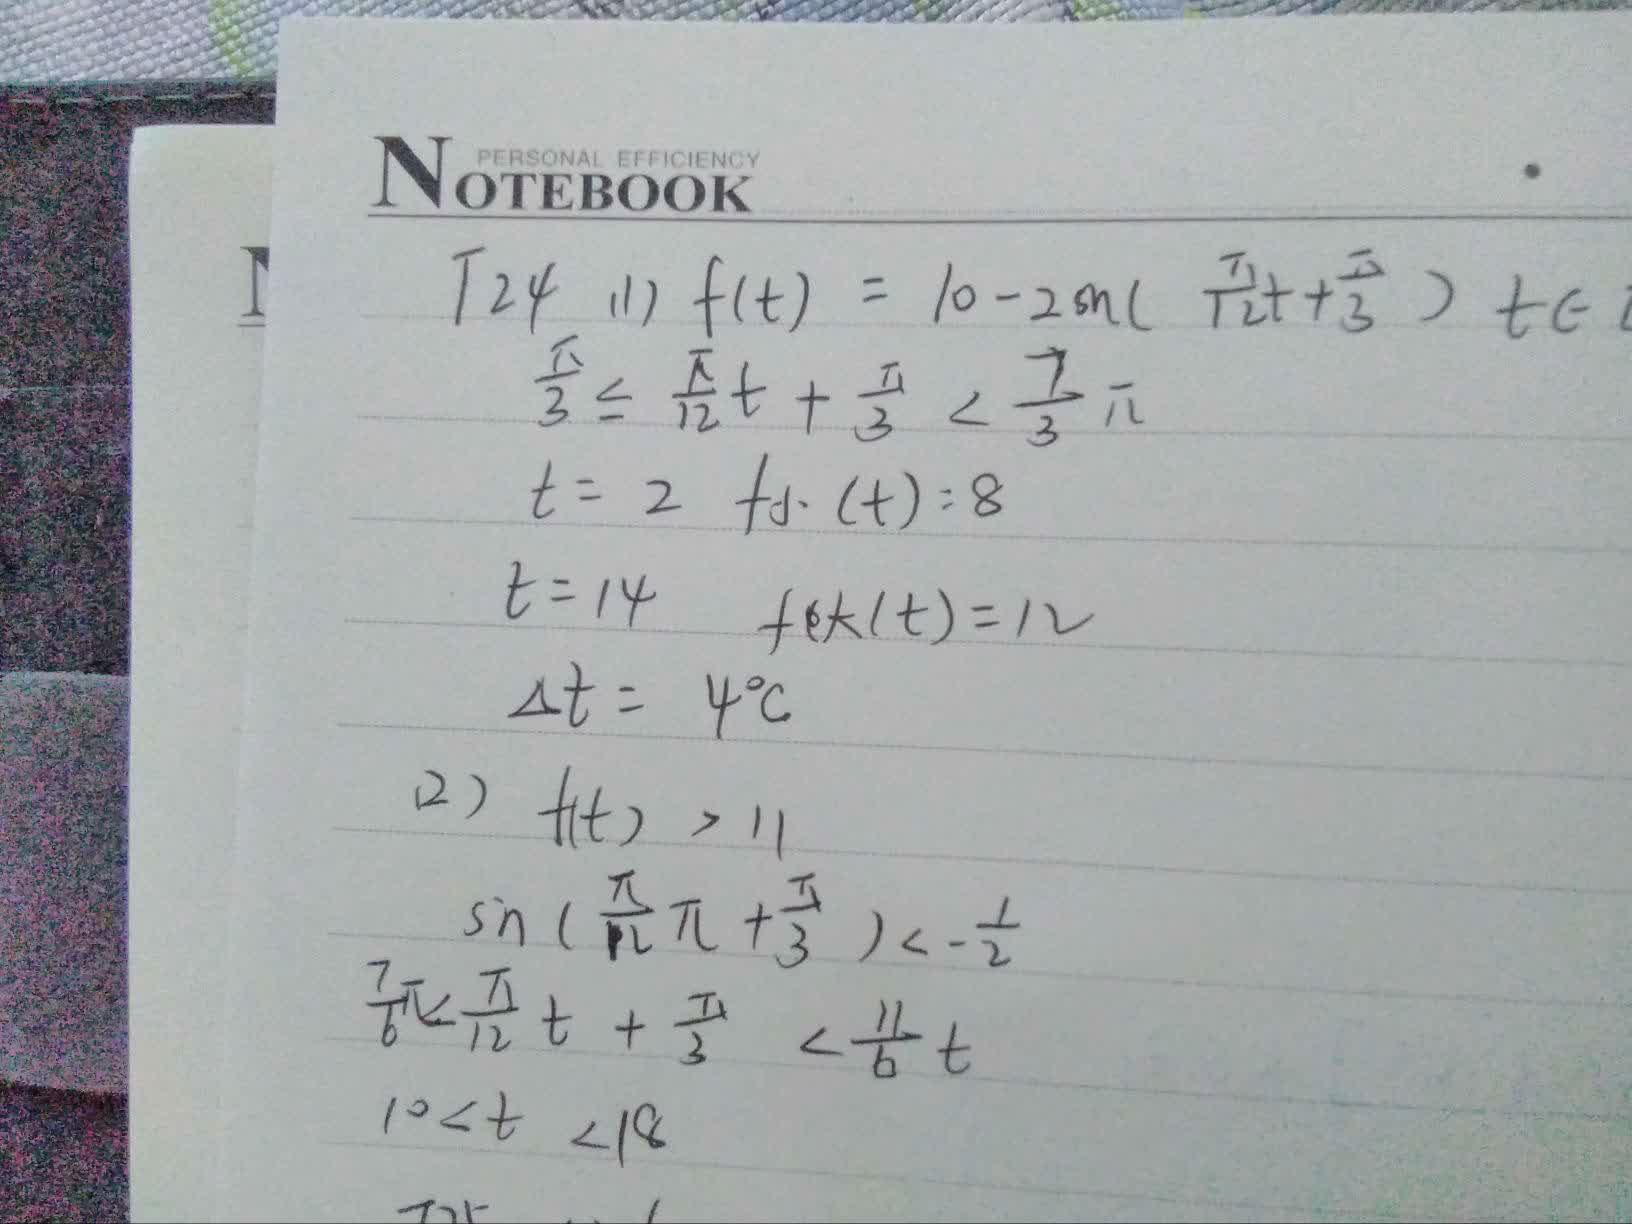 PERSONAL EFFICIENCY
NOTEBOOK
T24 (1) f(t) = 10-2sin( π/12 t + π/3 ) t∈[
π/3 ≤ π/12 t + π/3 < 7/3 π
t = 2 f小(t) = 8
t = 14 f大(t) = 12
Δt = 4℃
(2) f(t) > 11
sin( π/12 π + π/3 ) < - 1/2
7/6 π < π/12 t + π/3 < 11/6 t
10 < t < 18